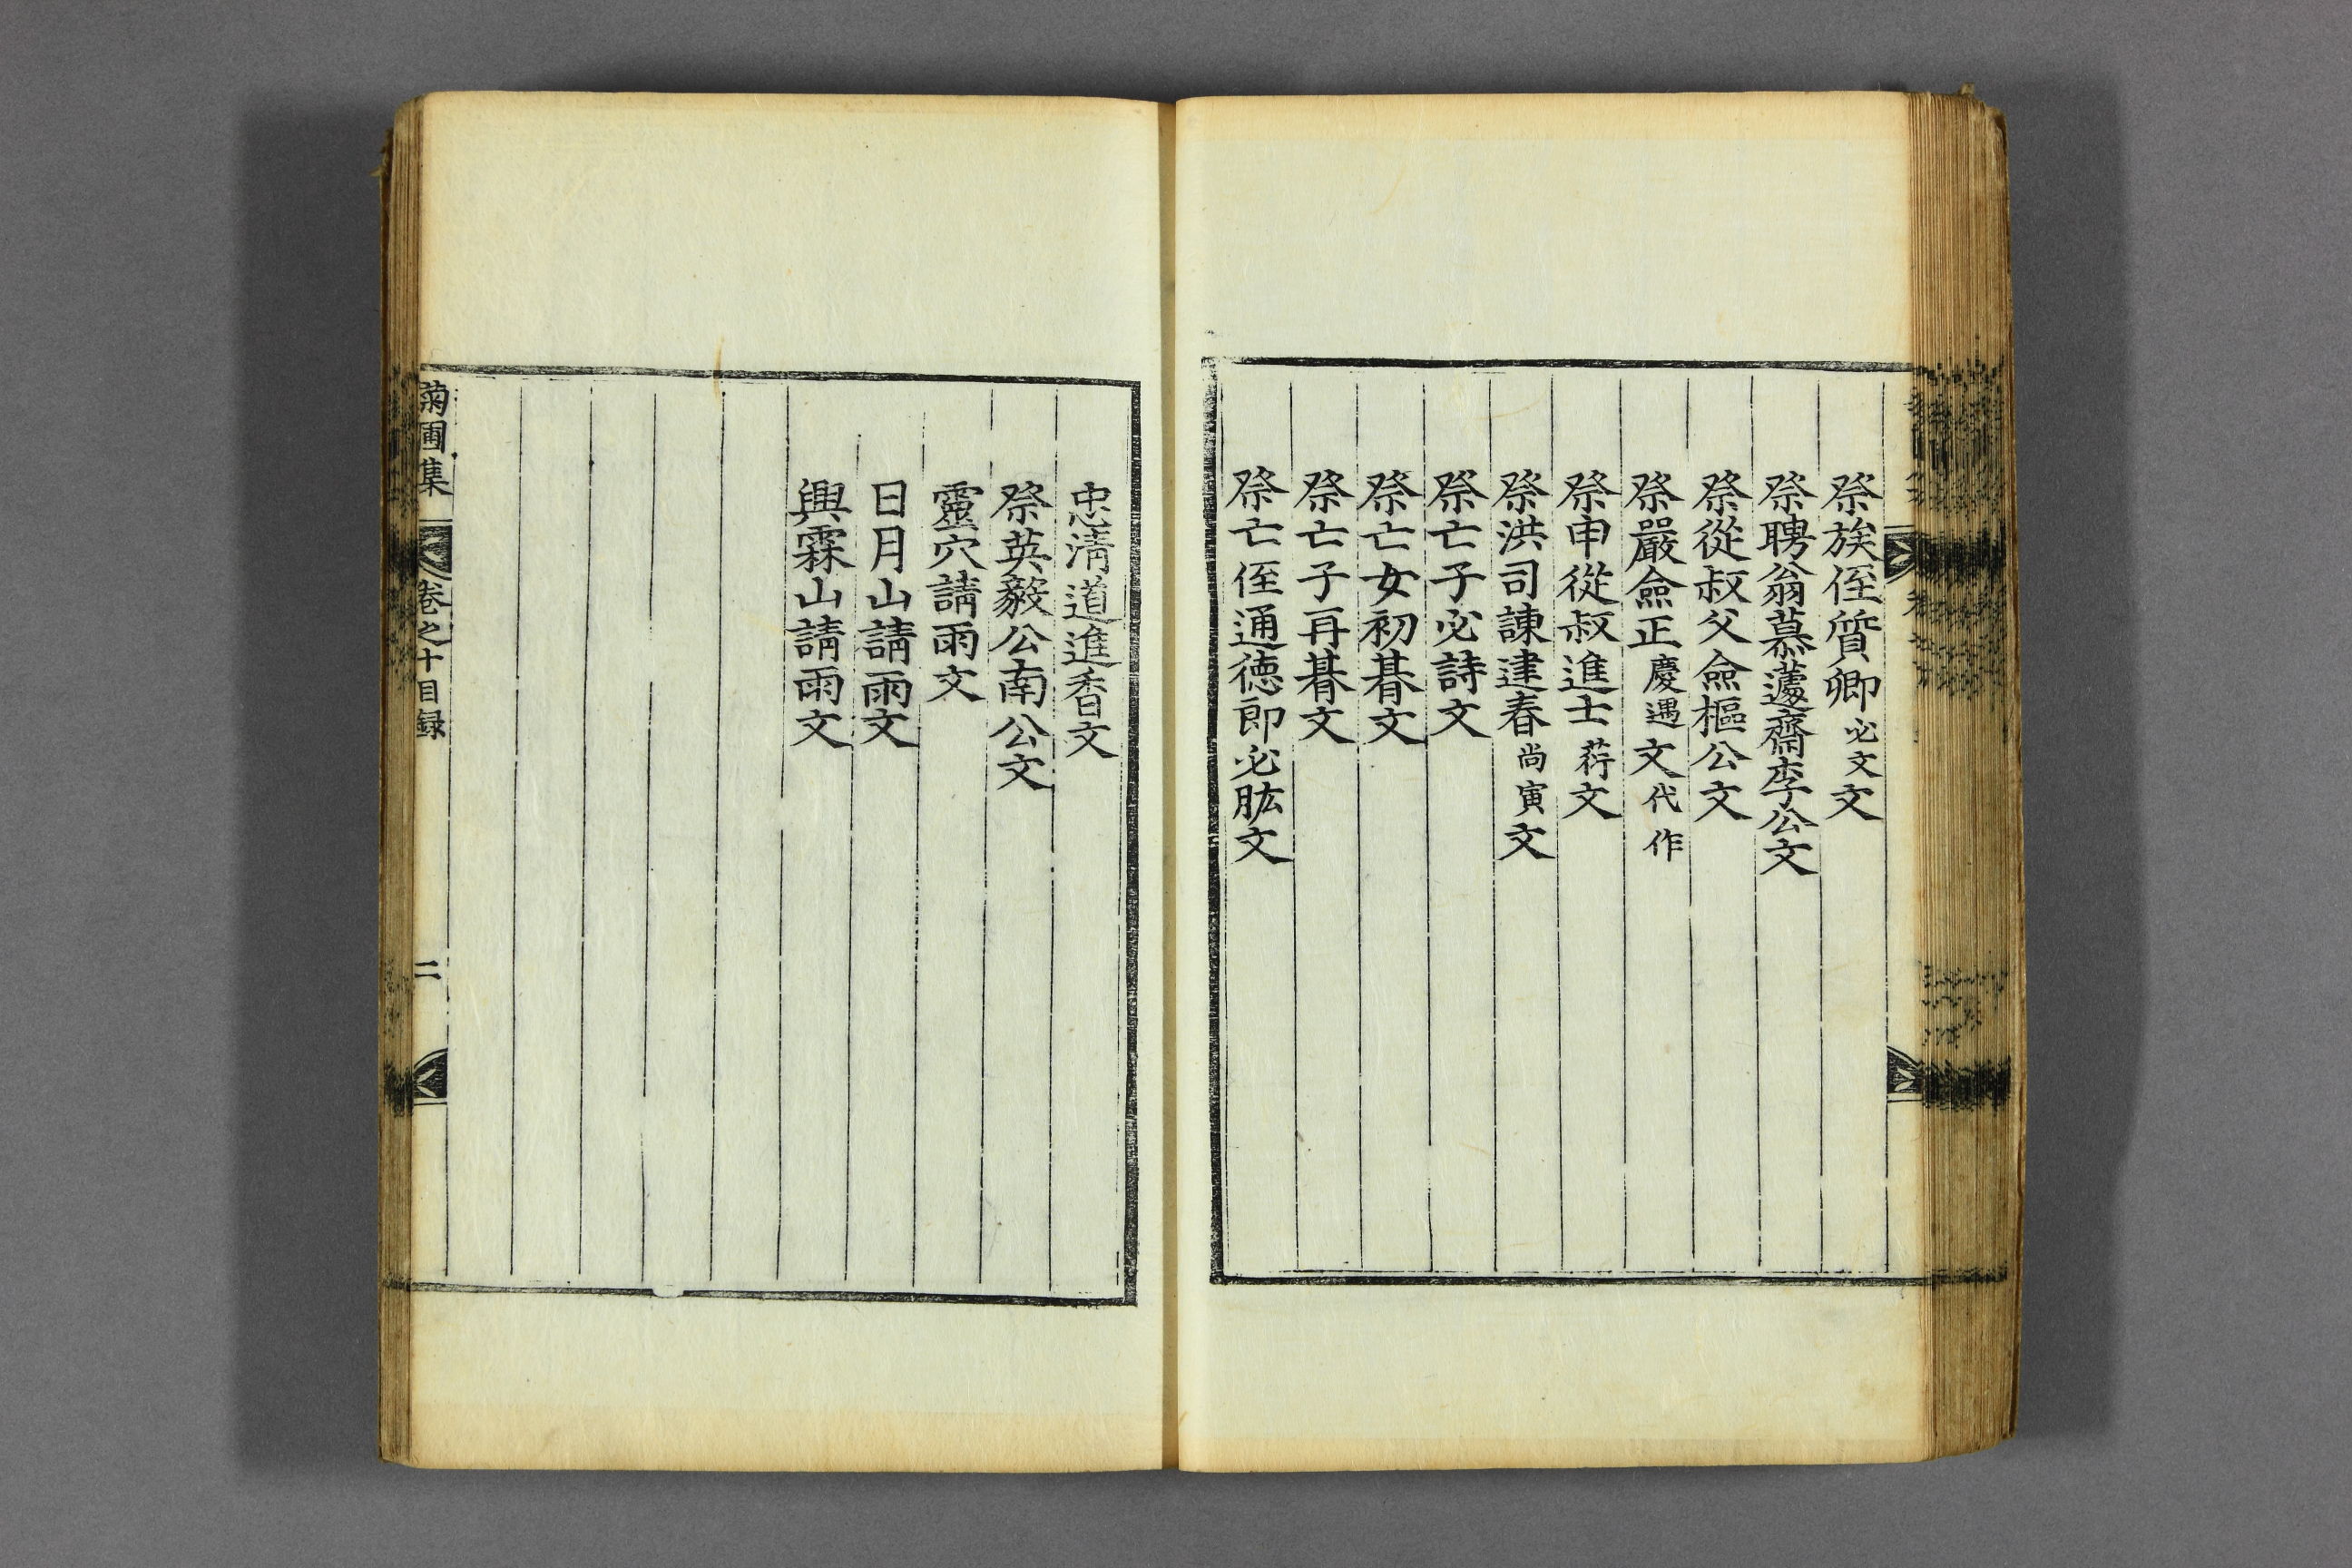 祭族侄質卿必文文
祭聘翁慕蘧齋李公文
祭從叔父僉樞公文
祭嚴僉正慶遇文代作
祭申從叔進士荇文
祭洪司諫建春尚寅文
祭亡子必詩文
祭亡女初朞文
祭亡子再朞文
祭亡侄通德郎必肱文
忠淸道進香文
祭英毅公南公文
靈穴請雨文
日月山請雨文
興霖山請雨文
菊圃集 卷之十目録 二